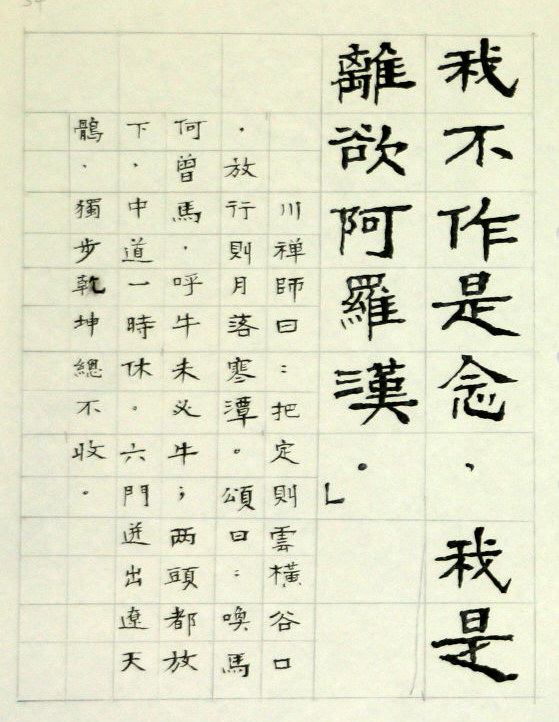 我不作是念，我是
離欲阿羅漢。」
川禅師曰：把定則雲橫谷口
，放行則月落寒潭。頌曰：喚馬
何曾馬，呼牛未必牛；两頭都放
下，中道一時休。六門迸出遼天
鶻，獨步乾坤總不收。